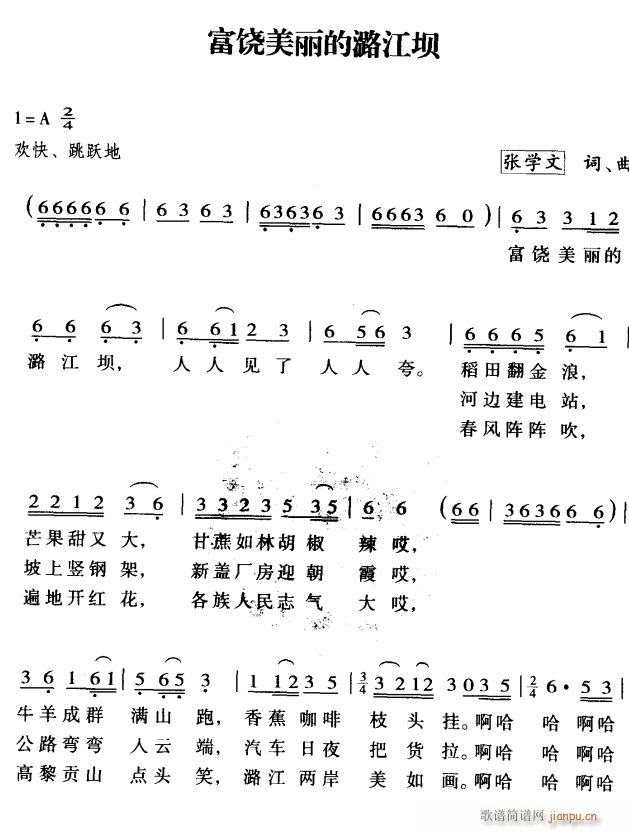 富饶美丽的潞江坝
1=A 2/4
欢快、跳跃地
张学文 词、曲
(66666 6 | 6 3 6 3 | 6363 6 3 | 6663 6 0 ) | 6 3 3 12
富饶美丽的
6 6 6 3 | 6 61 23 | 6 56 3 | 6665 6 1 |
潞江坝， 人人见了人人夸。 稻田翻金浪，
河边建电站，
春风阵阵吹，
2212 36 | 33235 35 | 6 6 (66 | 36366 6 ) |
芒果甜又大， 甘蔗如林胡椒 辣哎，
坡上竖钢架， 新盖厂房迎朝 霞哎，
遍地开红花， 各族人民志气 大哎，
36 1 61 | 5 65 3 | 1 12 35 | 3/4 3212 3 035 | 2/4 6· 53 |
牛羊成群 满山跑，香蕉咖啡 枝头挂。啊哈 哈啊哈
公路弯弯 入云端，汽车日夜 把货拉。啊哈 哈啊哈
高黎贡山 点头笑，潞江两岸 美如画。啊哈 哈啊哈
歌谱简谱网 jianpu.cn